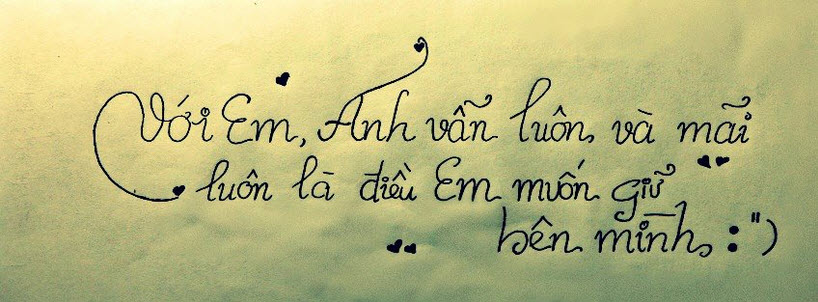 Với Em, Anh vẫn luôn và mãi
luôn là điều Em muốn giữ
bên mình, :")